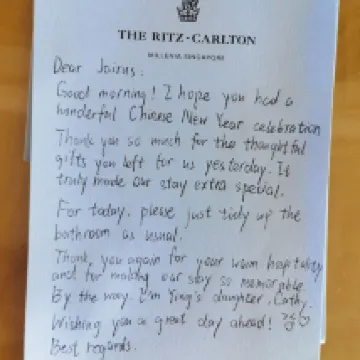 THE RITZ-CARLTON
MILLENIA SINGAPORE
Dear Jairus:
Good morning! I hope you had a
wonderful Chinese New Year celebration
Thank you so much for the thoughtful
gifts you left for us yesterday. It
truly made our stay extra special.
For today, please just tidy up the
bathroom as usual.
Thank you again for your warm hospitality
and for making our stay so memorable.
By the way, I'm Ying's daughter, Cathy.
Wishing you a great day ahead!
Best regards.